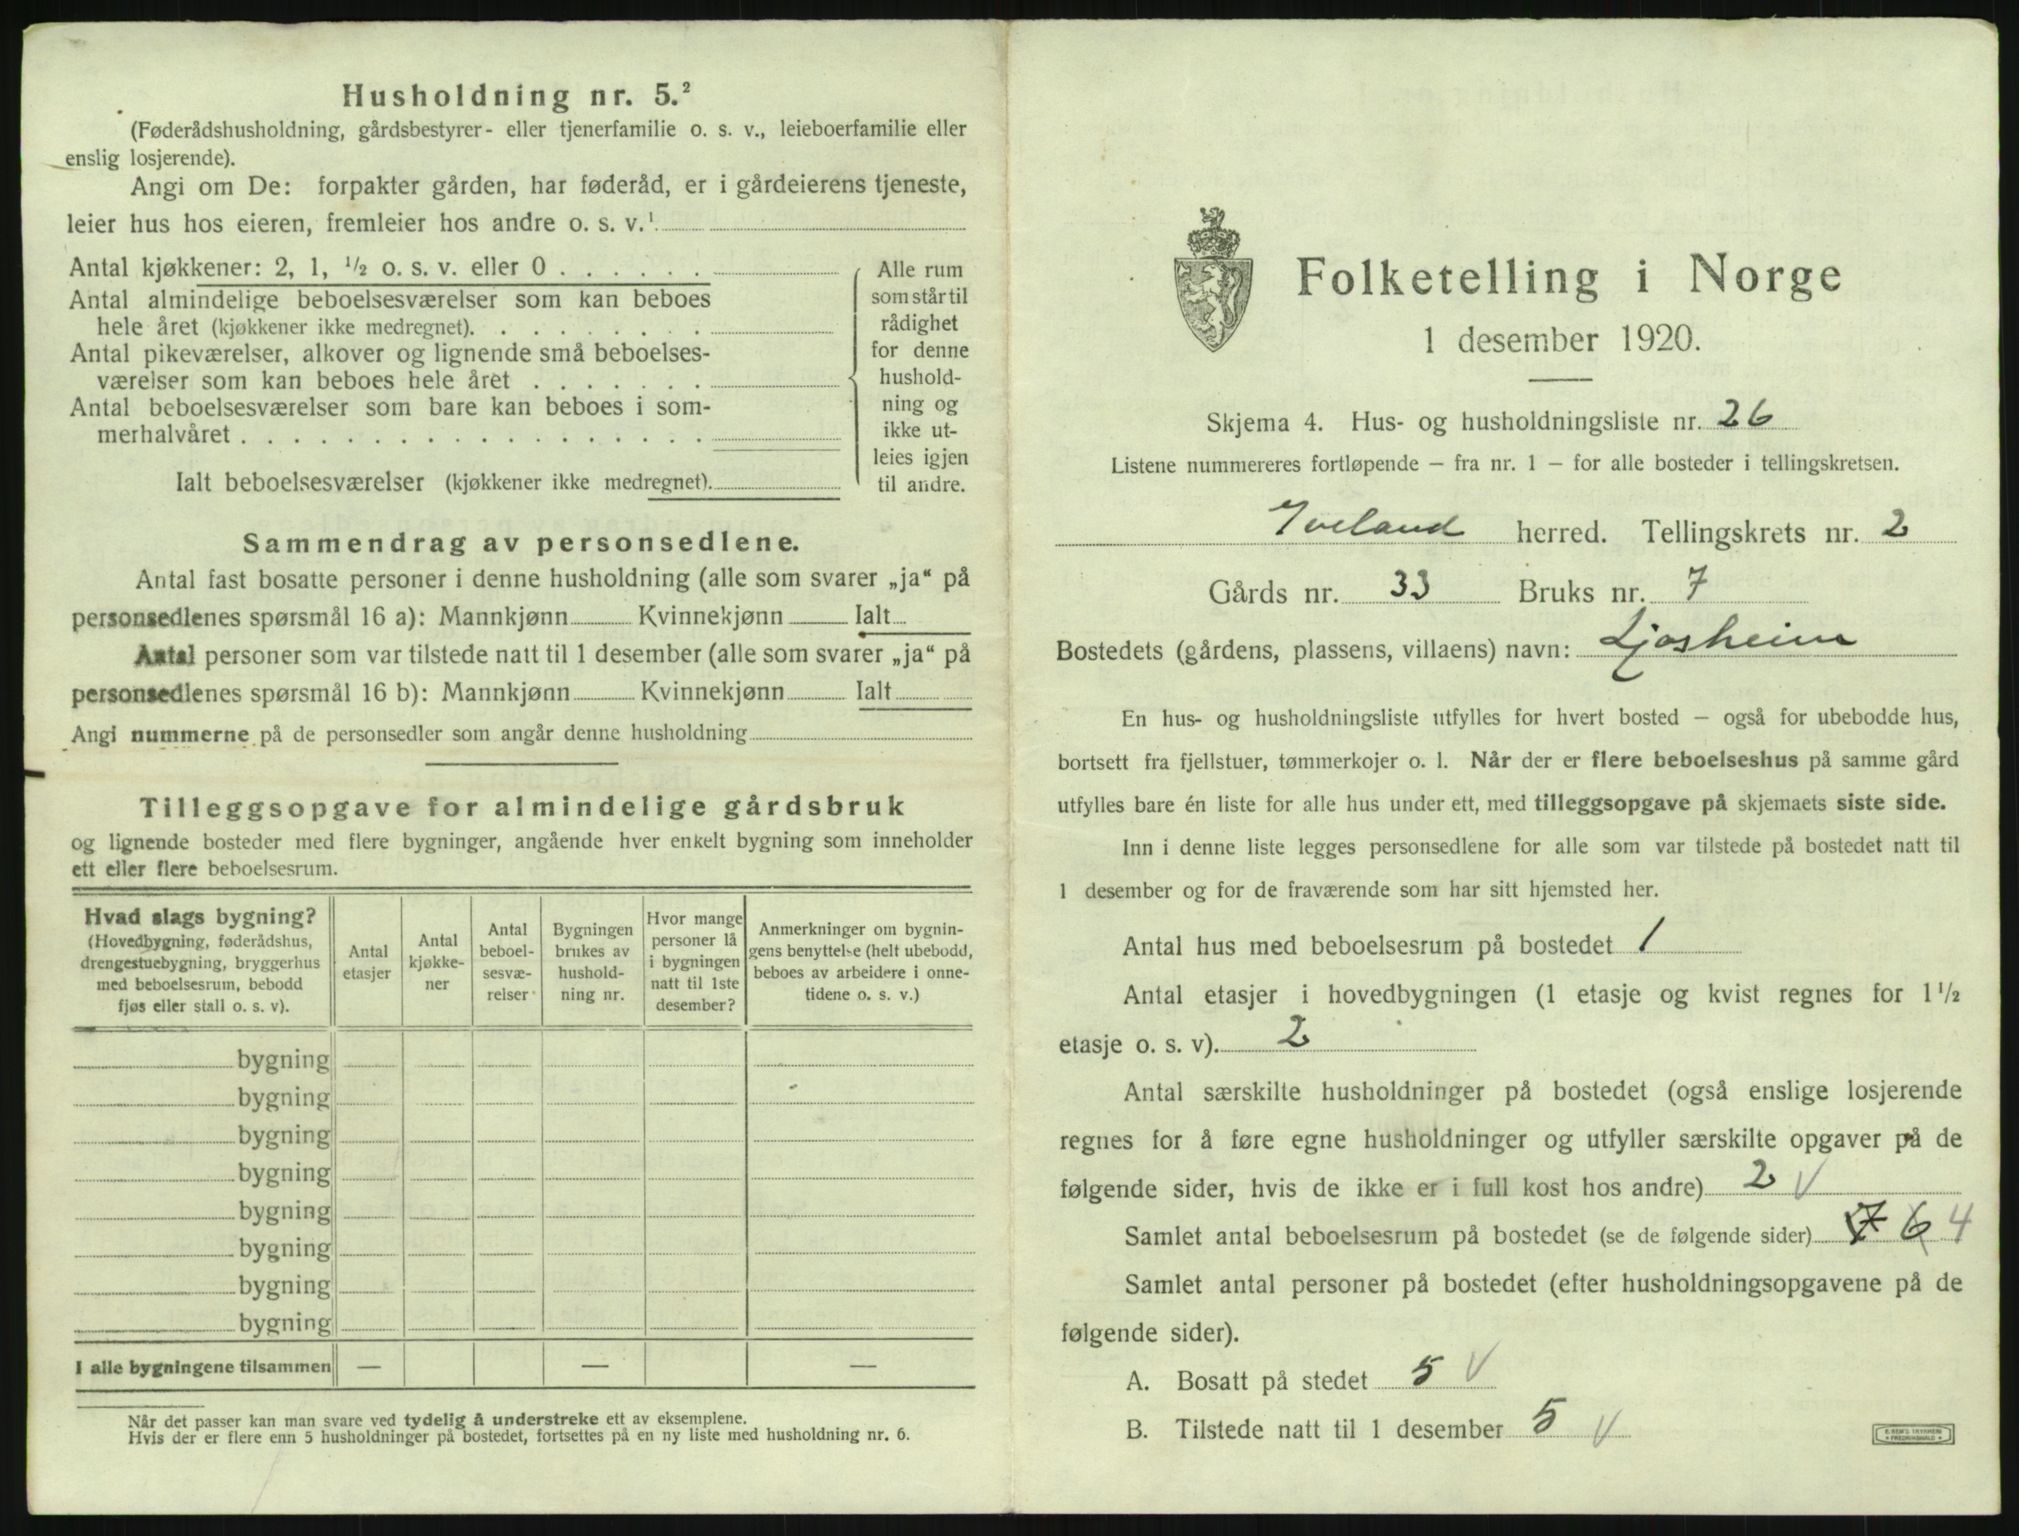 Husholdning nr. 5.²
(Føderådshusholdning, gårdsbestyrer- eller tjenerfamilie o. s. v., leieboerfamilie eller
enslig losjerende).
Angi om De: forpakter gården, har føderåd, er i gårdeierens tjeneste,
leier hus hos eieren, fremleier hos andre o. s. v.¹
Antal kjøkkener: 2, 1, ½ o. s. v. eller 0 . . . . . .
Antal almindelige beboelsesværelser som kan beboes
hele året (kjøkkener ikke medregnet). . . . . . . . .
Antal pikeværelser, alkover og lignende små beboelses-
værelser som kan beboes hele året . . . . . . .
Antal beboelsesværelser som bare kan beboes i som-
merhalvåret . . . . . . . . . . . . . . . . . .
Ialt beboelsesværelser (kjøkkener ikke medregnet).
Alle rum
som står til
rådighet
for denne
hushold-
ning og
ikke ut-
leies igjen
til andre.
Sammendrag av personsedlene.
Antal fast bosatte personer i denne husholdning (alle som svarer „ja“ på
personsedlenes spørsmål 16 a): Mannkjønn Kvinnekjønn Ialt
Antal personer som var tilstede natt til 1 desember (alle som svarer „ja“ på
personsedlenes spørsmål 16 b): Mannkjønn Kvinnekjønn Ialt
Angi nummerne på de personsedler som angår denne husholdning
Tilleggsopgave for almindelige gårdsbruk
og lignende bosteder med flere bygninger, angående hver enkelt bygning som inneholder
ett eller flere beboelsesrum.
Hvad slags bygning?
(Hovedbygning, føderådshus,
drengestuebygning, bryggerhus
med beboelsesrum, bebodd
fjøs eller stall o. s. v).
Antal
etasjer
Antal
kjøkke-
ner
Antal
beboel-
sesvæ-
relser
Bygningen
brukes av
hushold-
ning nr.
Hvor mange
personer lå
i bygningen
natt til 1ste
desember?
Anmerkninger om bygnin-
gens benyttelse (helt ubebodd,
beboes av arbeidere i onne-
tidene o. s. v.)
bygning
bygning
bygning
bygning
bygning
bygning
bygning
bygning
I alle bygningene tilsammen — — —
Når det passer kan man svare ved tydelig å understreke ett av eksemplene.
Hvis der er flere enn 5 husholdninger på bostedet, fortsettes på en ny liste med husholdning nr. 6.
Folketelling i Norge
1 desember 1920.
Skjema 4. Hus- og husholdningsliste nr. 26
Listene nummereres fortløpende – fra nr. 1 – for alle bosteder i tellingskretsen.
Iveland herred. Tellingskrets nr. 2
Gårds nr. 33 Bruks nr. 7
Bostedets (gårdens, plassens, villaens) navn: Ljosheim
En hus- og husholdningsliste utfylles for hvert bosted – også for ubebodde hus,
bortsett fra fjellstuer, tømmerkojer o. l. Når der er flere beboelseshus på samme gård
utfylles bare én liste for alle hus under ett, med tilleggsopgave på skjemaets siste side.
Inn i denne liste legges personsedlene for alle som var tilstede på bostedet natt til
1 desember og for de fraværende som har sitt hjemsted her.
Antal hus med beboelsesrum på bostedet 1
Antal etasjer i hovedbygningen (1 etasje og kvist regnes for 1½
etasje o. s. v). 2
Antal særskilte husholdninger på bostedet (også enslige losjerende
regnes for å føre egne husholdninger og utfyller særskilte opgaver på de
følgende sider, hvis de ikke er i full kost hos andre) 2 V
Samlet antal beboelsesrum på bostedet (se de følgende sider) 7 6 4
Samlet antal personer på bostedet (efter husholdningsopgavene på de
følgende sider).
A. Bosatt på stedet 5 V
B. Tilstede natt til 1 desember 5 V